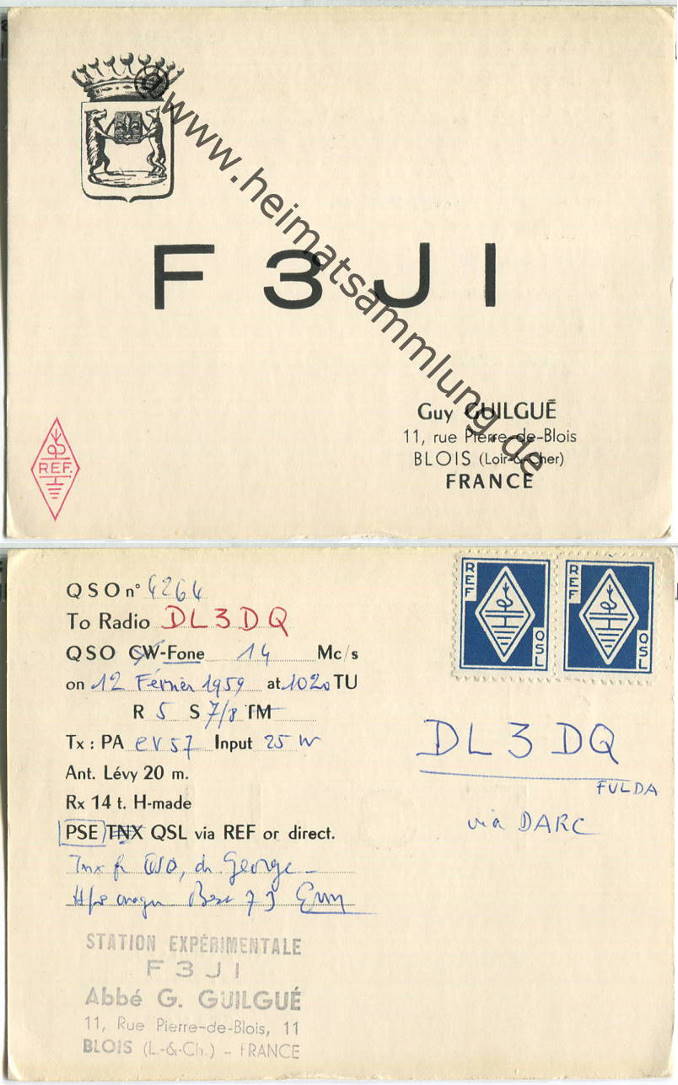 @www.heimatsammlung.de
F 3 J I
Guy GUILGUÉ
11, rue Pierre-de-Blois
BLOIS (Loir-&-Cher)
FRANCE
R.E.F.
QSO n° 4264
To Radio DL3DQ
QSO CW-Fone 14 Mc/s
on 12 Février 1959 at 1020 TU
R 5 S 7/8 TM
Tx : PA EV57 Input 25 W
Ant. Lévy 20 m.
Rx 14 t. H-made
PSE TNX QSL via REF or direct.
Tnx fr QSO, dr George
Best 73 Guy
STATION EXPÉRIMENTALE
F 3 J I
Abbé G. GUILGUÉ
11, Rue Pierre-de-Blois, 11
BLOIS (L.-&-Ch.) - FRANCE
REF
QSL
REF
QSL
DL3DQ
FULDA
via DARC